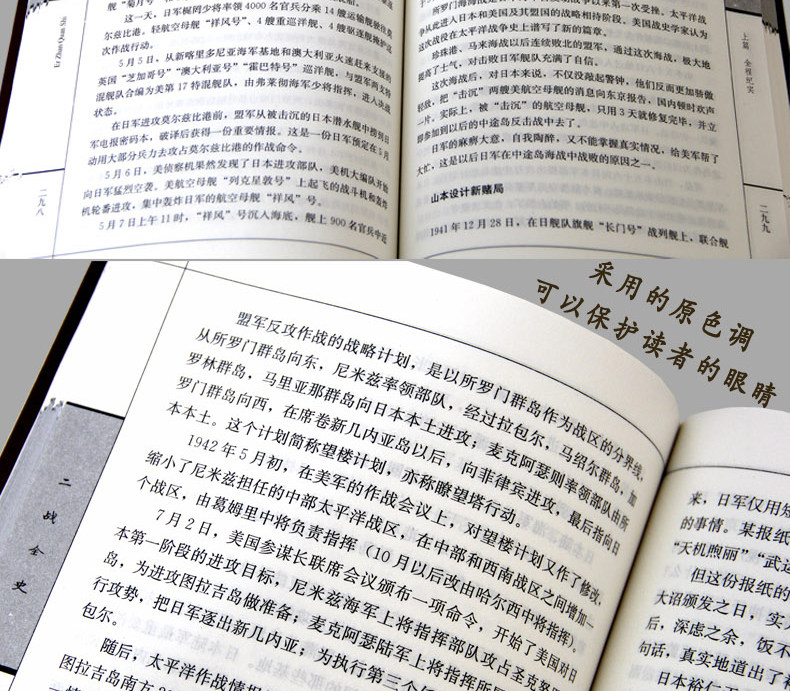 舰“菊月号”
这一天，日军梶冈少将率领4000名官兵分乘14艘运输舰驶往莫
尔兹比港。轻航空母舰“祥凤号”、4艘重巡洋舰、4艘驱逐舰掩护这
次作战行动。
5月5日，从新喀里多尼亚海军基地和澳大利亚火速赶来支援的
英国“芝加哥号”“澳大利亚号”“霍巴特号”巡洋舰，与盟军两支特
混舰队合编为美第17特混舰队，由弗莱彻海军少将指挥，进入决战
状态。
在日军进攻莫尔兹比港前，盟军从被击沉的日本潜水舰中捞到日
军电报密码本，破译后获得一份重要情报。这是一份日军预定在5月
动用大部分兵力去攻占莫尔兹比港的作战命令。
5月6日，美侦察机果然发现了日本进攻部队，美机大编队开始
向日军猛烈空袭。美航空母舰“列克星敦号”上起飞的战斗机和轰炸
机轮番进攻，集中轰炸日军的航空母舰“祥凤”号。
5月7日上午11时，“祥凤”号沉入海底，舰上900名官兵中近
Er Zhan Quan Shi
二九八
所罗门海海战是日本
争从此进入日本和美国及其盟国的战略相持阶段。美国战史学家认为
这次战役在太平洋战争史上谱写了新的篇章。
珍珠港、马来海战以后连续败北的盟军，通过这次海战，极大地
提高了士气，对击败日军舰队充满了自信。
这次海战后，对日本来说，不仅没敲起警钟，他们反而更加骄傲
轻敌，把“击沉”两艘美航空母舰的消息向东京报告，国内顿时欢声
一片。实际上，被“击沉”的航空母舰，只用3天就修复完毕，并立
即参加到以后的中途岛反击战中去了。
日军的麻痹大意，自我陶醉，又不能掌握真实情况，给美军帮了
大忙，这是以后日军在中途岛海战中战败的原因之一。
山本设计新赌局
1941年12月28日，在日舰队旗舰“长门号”战列舰上，联合舰
上篇 全程纪实
二九九
采用的原色调
可以保护读者的眼睛
盟军反攻作战的战略计划，是以所罗门群岛作为战区的分界线，
从所罗门群岛向东，尼米兹率领部队，经过拉包尔，马绍尔群岛，加
罗林群岛，马里亚那群岛向日本本土进攻；麦克阿瑟则率领部队由所
罗门群岛向西，在席卷新几内亚岛以后，向菲律宾进攻，最后指向日
本本土。这个计划简称望楼计划，亦称瞭望塔行动。
1942年5月初，在美军的作战会议上，对望楼计划又作了修改，
缩小了尼米兹担任的中部太平洋战区，在中部和西南战区之间增加一
个战区，由葛姆里中将负责指挥（10月以后改由哈尔西中将指挥）。
7月2日，美国参谋长联席会议颁布一项命令，开始了美国对日
本第一阶段的进攻目标，尼米兹海军上将指挥部队攻占圣克鲁
岛，为进攻图拉吉岛做准备；麦克阿瑟陆军上将指挥所
行攻势，把日军逐出新几内亚；为执行第三个
包尔。
随后，太平洋作战情报
图拉吉岛南方
二战全史
来，日军仅用短
的事情。某报纸
“天机煦丽”“武运
但这份报纸的
大诏颁发之日，实
后，深虑之余，饭不
句话，真实地道出了
日本裕仁